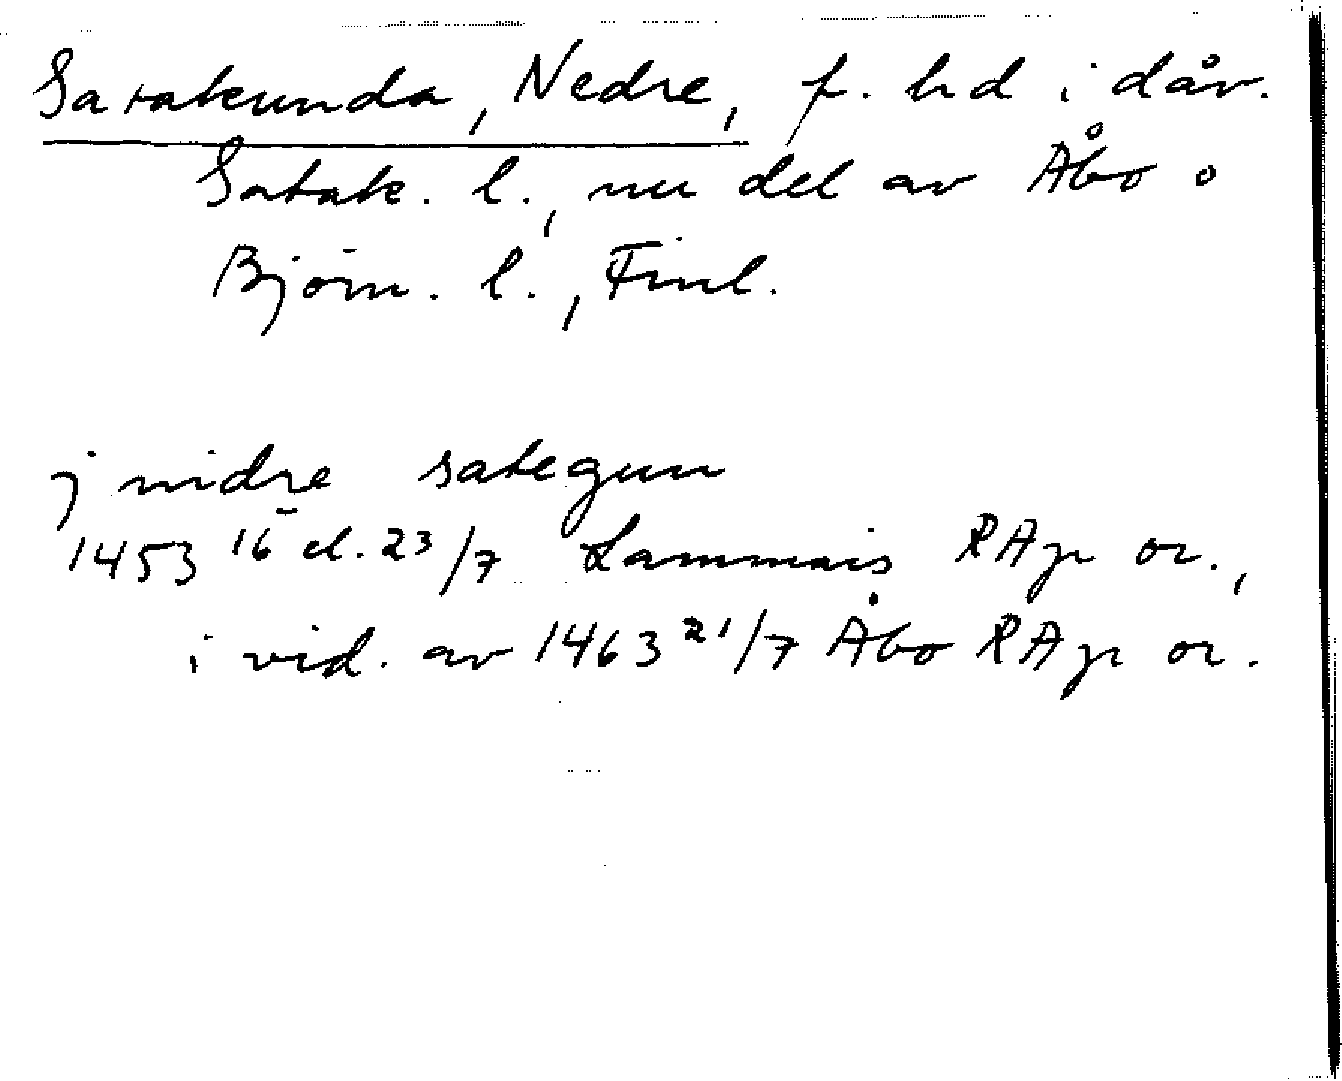 Satakunda, Nedre, f. hd i dåv.
Satak. l., nu del av Åbo o
Björn. l., Finl.
j nidre sategun
1453 16 el. 23/7 Lammais RAp or.,
i vid. av 1463 21/7 Åbo RAp or.